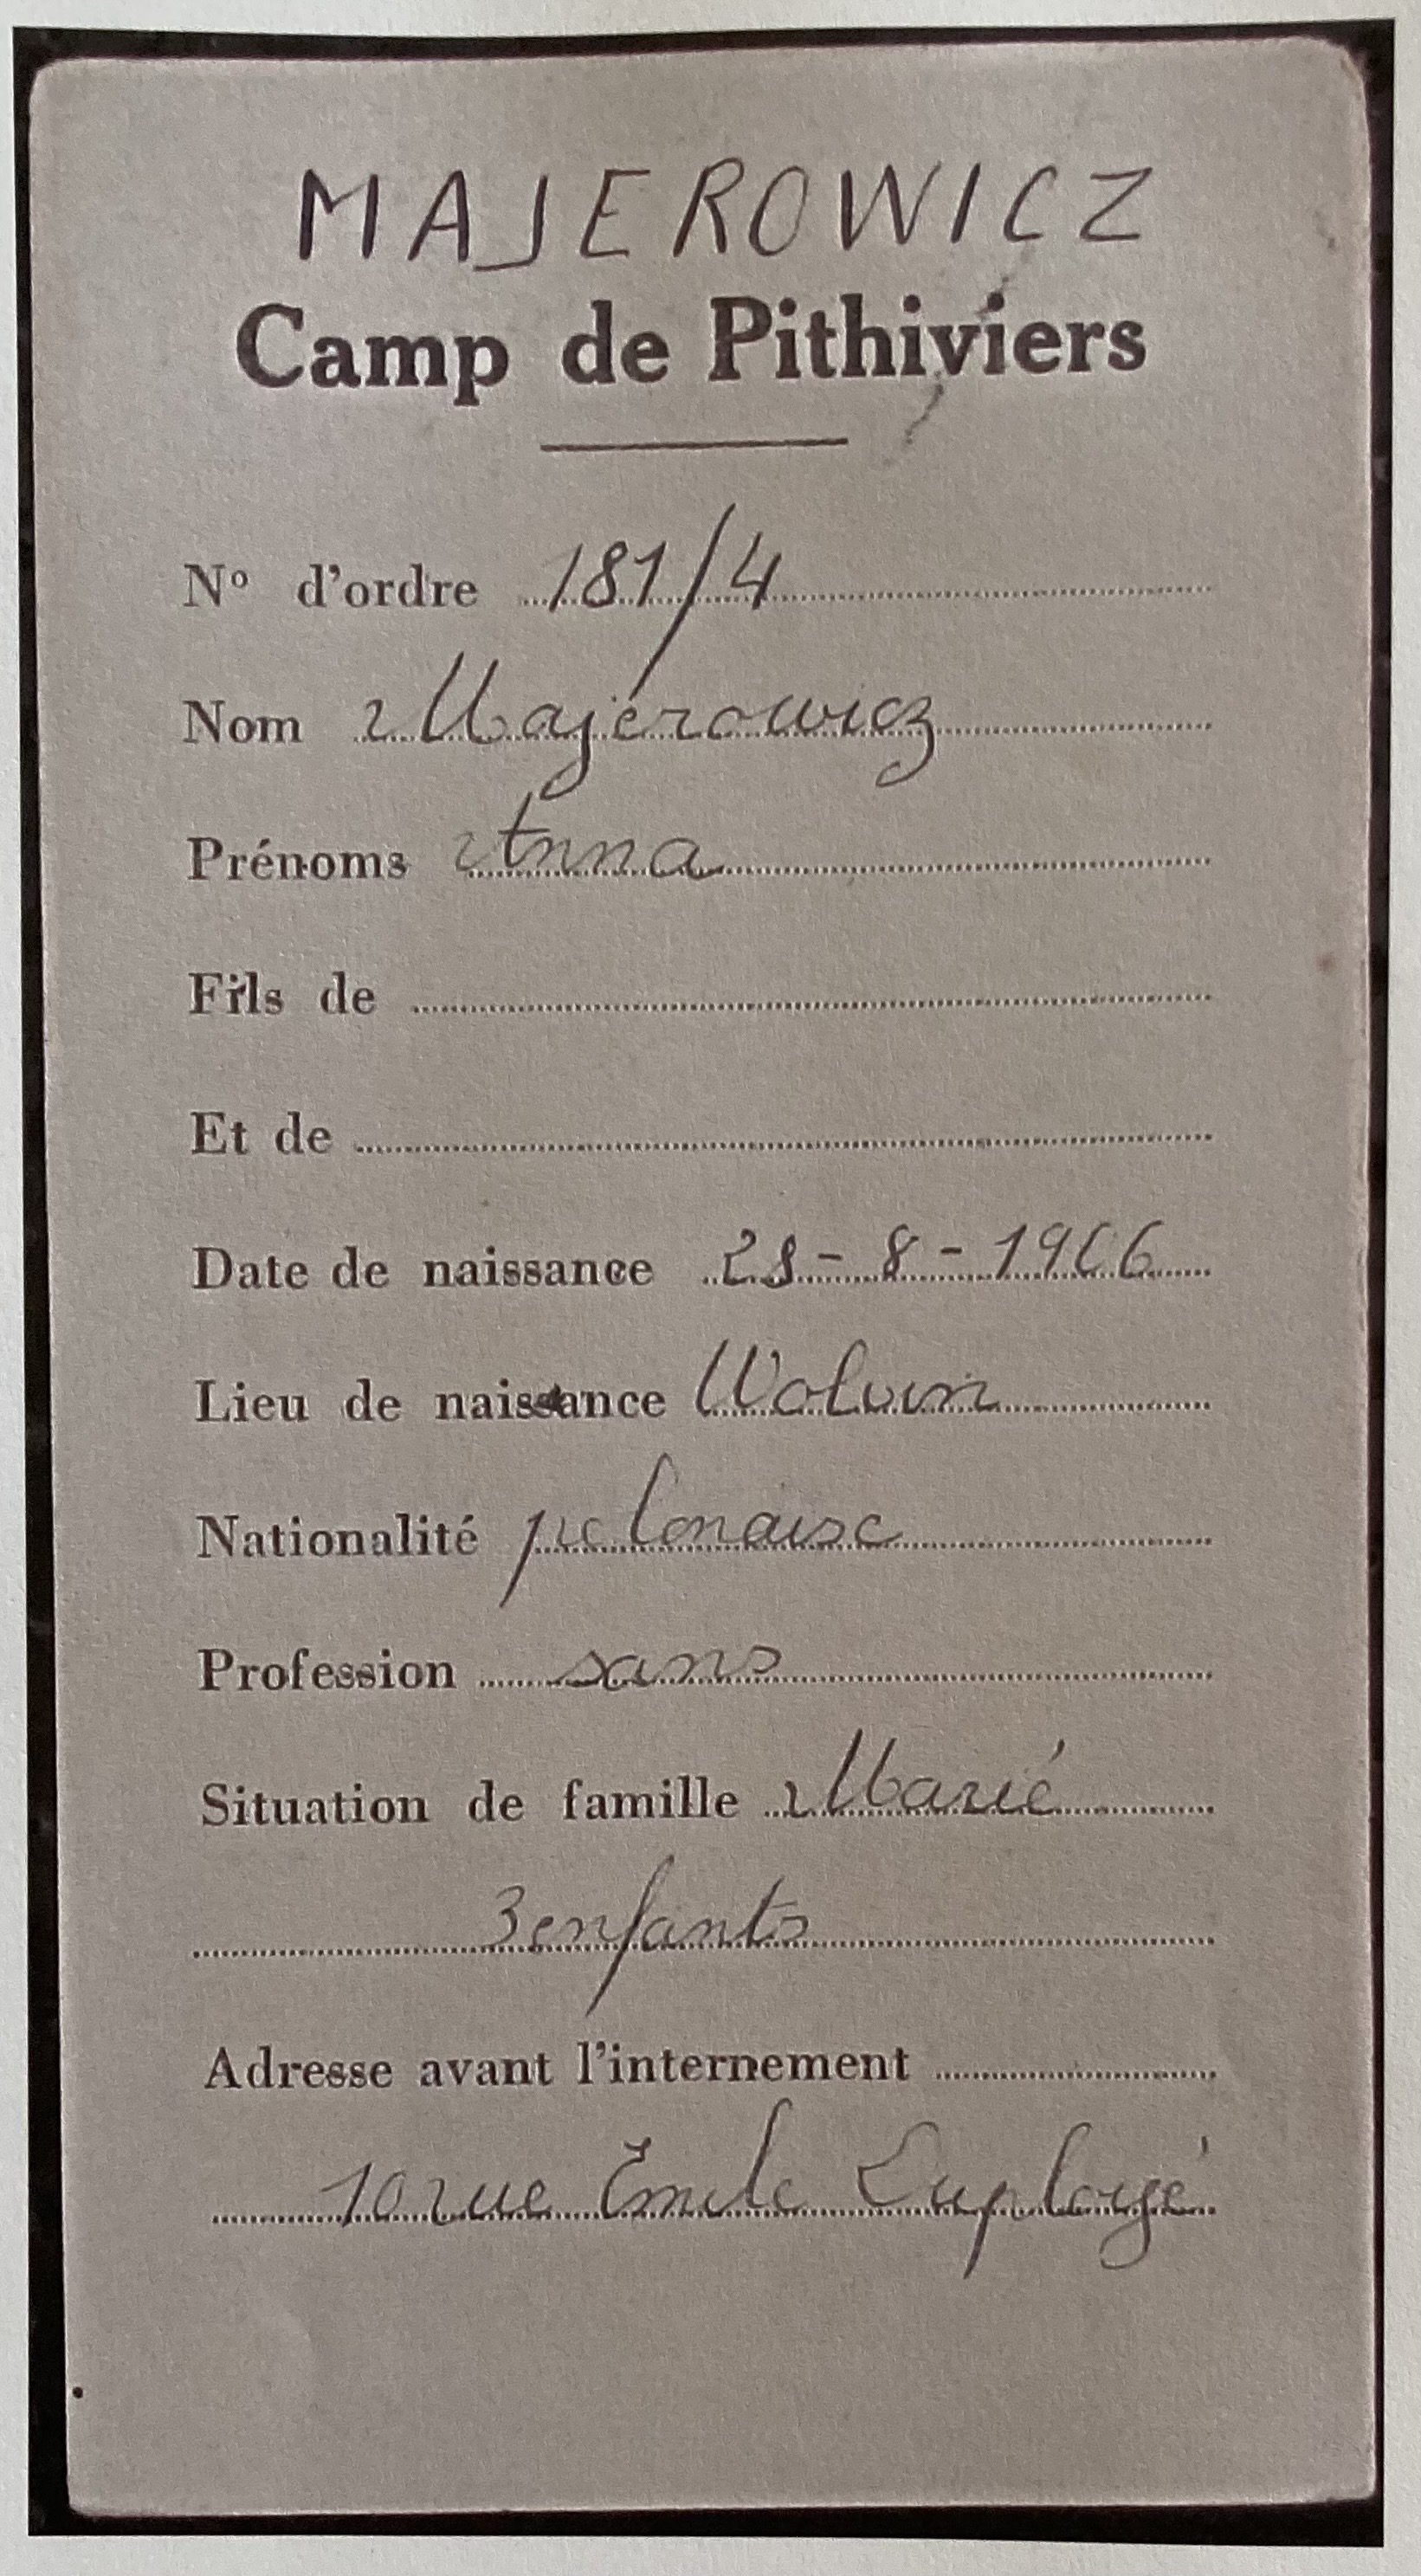 MAJEROWICZ
Camp de Pithiviers
N° d'ordre 181/4
Nom Majerowicz
Prénoms Anna
Fils de
Et de
Date de naissance 28-8-1906
Lieu de naissance
Nationalité polonaise
Profession sans
Situation de famille Marié
3 enfants
Adresse avant l'internement
10 rue Emile Duployé